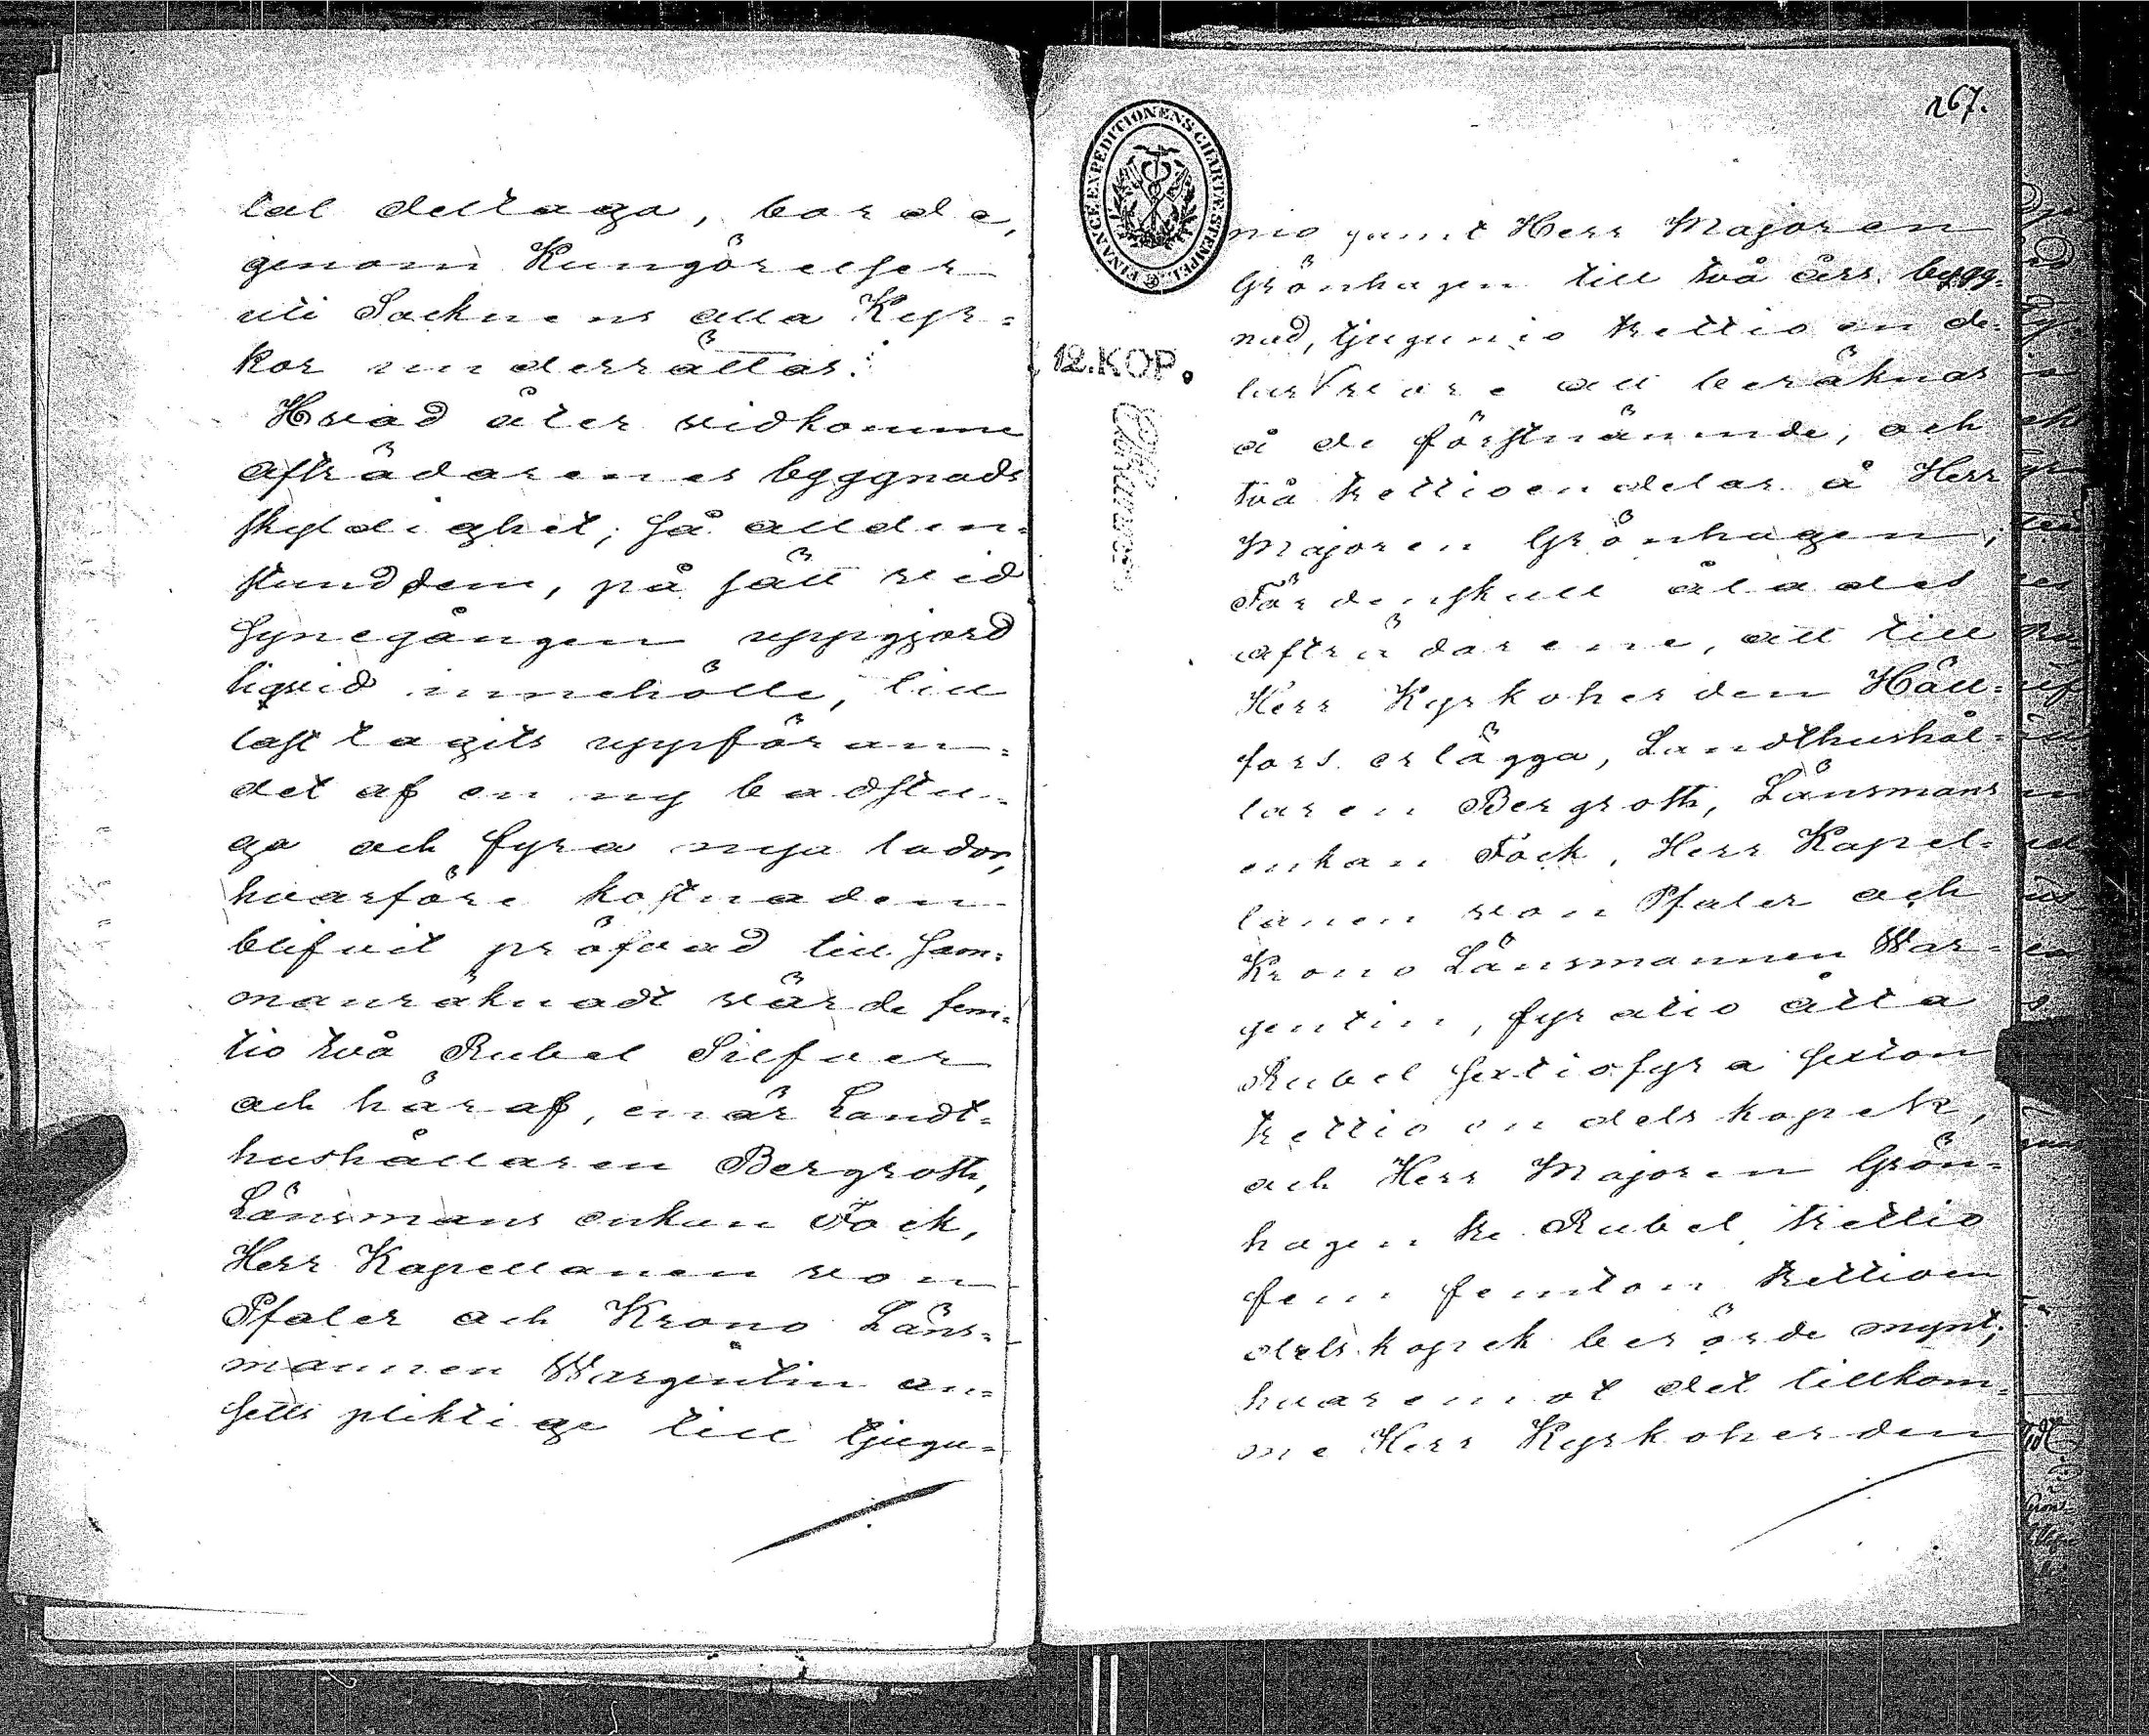 tal deltaga, borde,
genom Kungörelser
uti Socknens alla Kyr=
kor underrättas.
Hvad åter vidkomme
afträdarenes byggnads
skyldighet, så allden-
stund dem, på sätt vid
Synegången uppgjord
liqvid innehölle, till
last lagits uppföran=
det af en ny badstu-
ga och fyra nya lador,
hvarföre kostnaden
blifvit pröfvad till sam=
manräknadt värde fem=
tio två Rubel Silfver
och häraf, enär Landt=
hushållaren Bergroth,
Länsmans enkan Fock,
Herr Kapellanen von
Pfaler och Krono Läns=
mannen Wargentin an=
setts pliktige till tjugu=
267.
FINANCE EXPEDITIONENS CHARTE STEMPEL
12.KOP.
nio samt Herr Majoren
Grönhagen till två års bygg=
nad, tjugunio trettioonde=
lar vore att beräknas
å de förstnämnde, och
två trettioendelar å Herr
Majoren Grönhagen;
Fördenskull ålades
afträdarene, att till
Herr Kyrkoherden Häll=
fors erlägga, Landthushål=
laren Bergroth, Länsmans
enkan Fock, Herr Kapel=
lanen von Pfaler och
Krono Länsmannen War=
gentin, fyratio åtta
Rubel sextiofyra sexton
trettioendels kopek,
och Herr Majoren Grön=
hagen tre Rubel trettio
fem femton trettioen
dels kopek berörde mynt;
hvaremot det tillkom=
me Herr Kyrkoherden